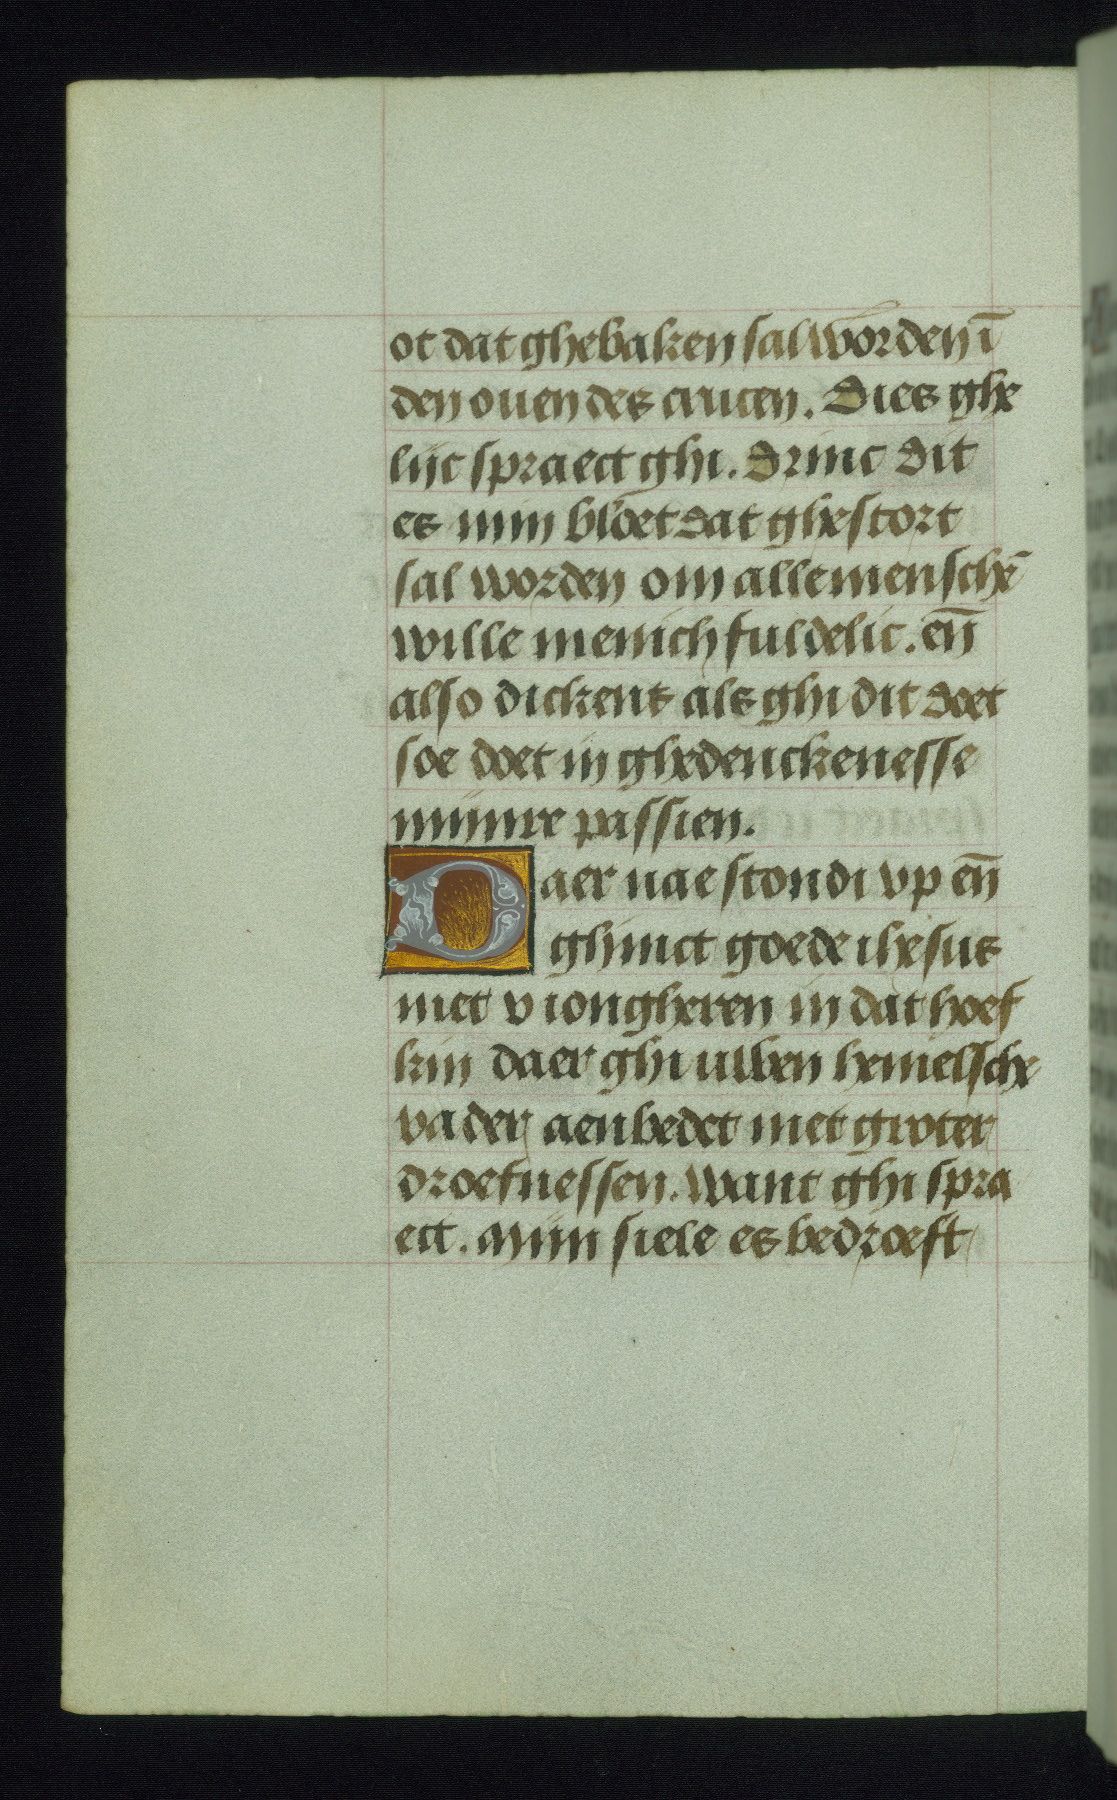 ot dat ghebaken sal worden ī
den ouen des crucen. Dies ghe
lijc spraect ghi. Drinc dit
es mijn bloet dat ghestort
sal worden om alle menschē
wille menichfuldelic. eñ
also dickent als ghi dit doet
soe doet in ghedenckenesse
mijnre passien.
Daer nae stondi vp eñ
ghinct goede ihesus
met v iongheren in dat hoef
kin daer ghi uwen hemelsche
vader aenbedet met groter
droefnessen. Want ghi spra
ect. Mijn siele es bedroeft